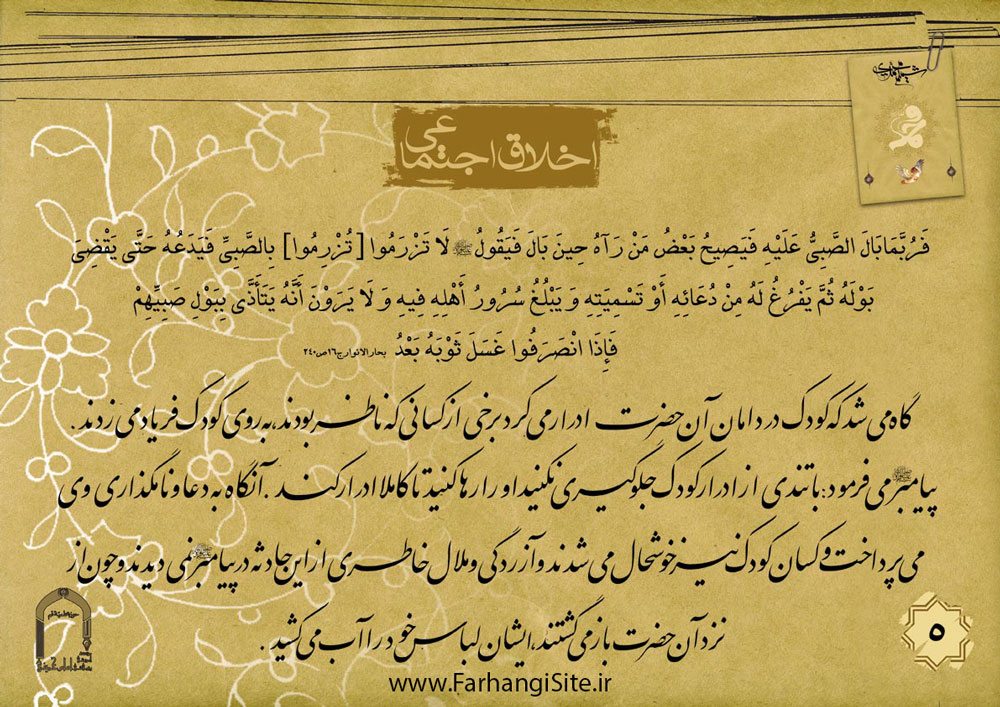 اخلاق اجتماعی
فَرُبَّمَا بَالَ الصَّبِيُّ عَلَيْهِ فَيَصِيحُ بَعْضُ مَنْ رَآهُ حِينَ بَالَ فَيَقُولُ ﷺ لَا تَزْرَمُوا [تُزْرِمُوا] بِالصَّبِيِّ فَيَدَعُهُ حَتَّى يَقْضِيَ
بَوْلَهُ ثُمَّ يَفْرُغُ لَهُ مِنْ دُعَائِهِ أَوْ تَسْمِيَتِهِ وَ يَبْلُغُ سُرُورُ أَهْلِهِ فِيهِ وَ لَا يَرَوْنَ أَنَّهُ يَتَأَذَّى بِبَوْلِ صَبِيِّهِمْ
فَإِذَا انْصَرَفُوا غَسَلَ ثَوْبَهُ بَعْدُ بحارالانوار ج۱۶ ص۲۴۰
گاه می شد که کودک در دامان آن حضرت ادرار می کرد برخی از کسانی که ناظر بودند، به روی کودک فریاد می زدند.
پیامبر ﷺ می فرمود: با تندی از ادرار کودک جلوگیری نکنید او را رها کنید تا کاملا ادرار کند. آنگاه به دعا و نامگذاری وی
می پرداخت و کسان کودک نیز خوشحال می شدند و آزردگی و ملال خاطری از این حادثه در پیامبر ﷺ نمی دیدند و چون از
نزد آن حضرت باز می گشتند، ایشان لباس خود را آب می کشید.
۵
www.FarhangiSite.ir